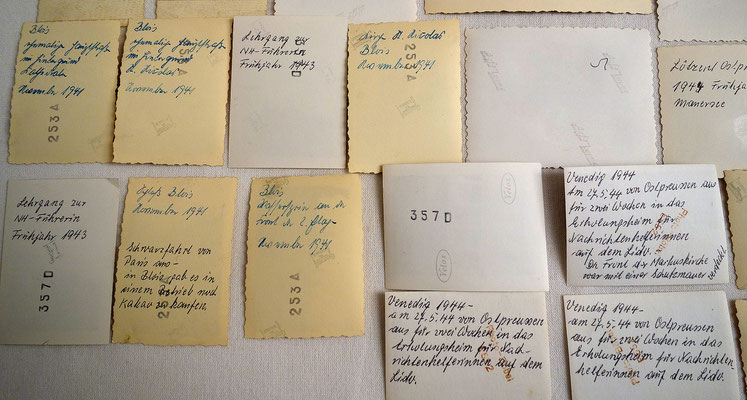 Blois
ehemalige
im Hintergrund
Kathedrale
November 1941
253 A
Blois
ehemalige
im Hintergrund
St. Nicolas
November 1941
Lehrgang zur
NH-Führerin
Frühjahr 1943
St. Nicolas
Blois
November 1941
253 A
Lötzen Ostpr.
1944 Frühjahr
Lehrgang zur
NH-Führerin
Frühjahr 1943
357 D
Schloß Blois
November 1941
Schwarzfahrt von
Paris aus -
in Blois gab es in
einem Betrieb noch
Kakao zu kaufen.
Blois
an der
Front des
November 1941
253 A
357 D
Velox
Velox
Venedig 1944
Am 27.5.44 von Ostpreussen aus
für zwei Wochen in das
Erholungsheim für
Nachrichtenhelferinnen
auf dem Lido.
Die Front der Markuskirche
war mit einer Schutzmauer verdeckt
Venedig 1944 -
am 27.5.44 von Ostpreussen
aus für zwei Wochen in das
Erholungsheim für Nach-
richtenhelferinnen auf dem
Lido.
Venedig 1944 -
am 27.5.44 von Ostpreussen
aus für zwei Wochen in das
Erholungsheim für Nachrichten
helferinnen auf dem Lido.